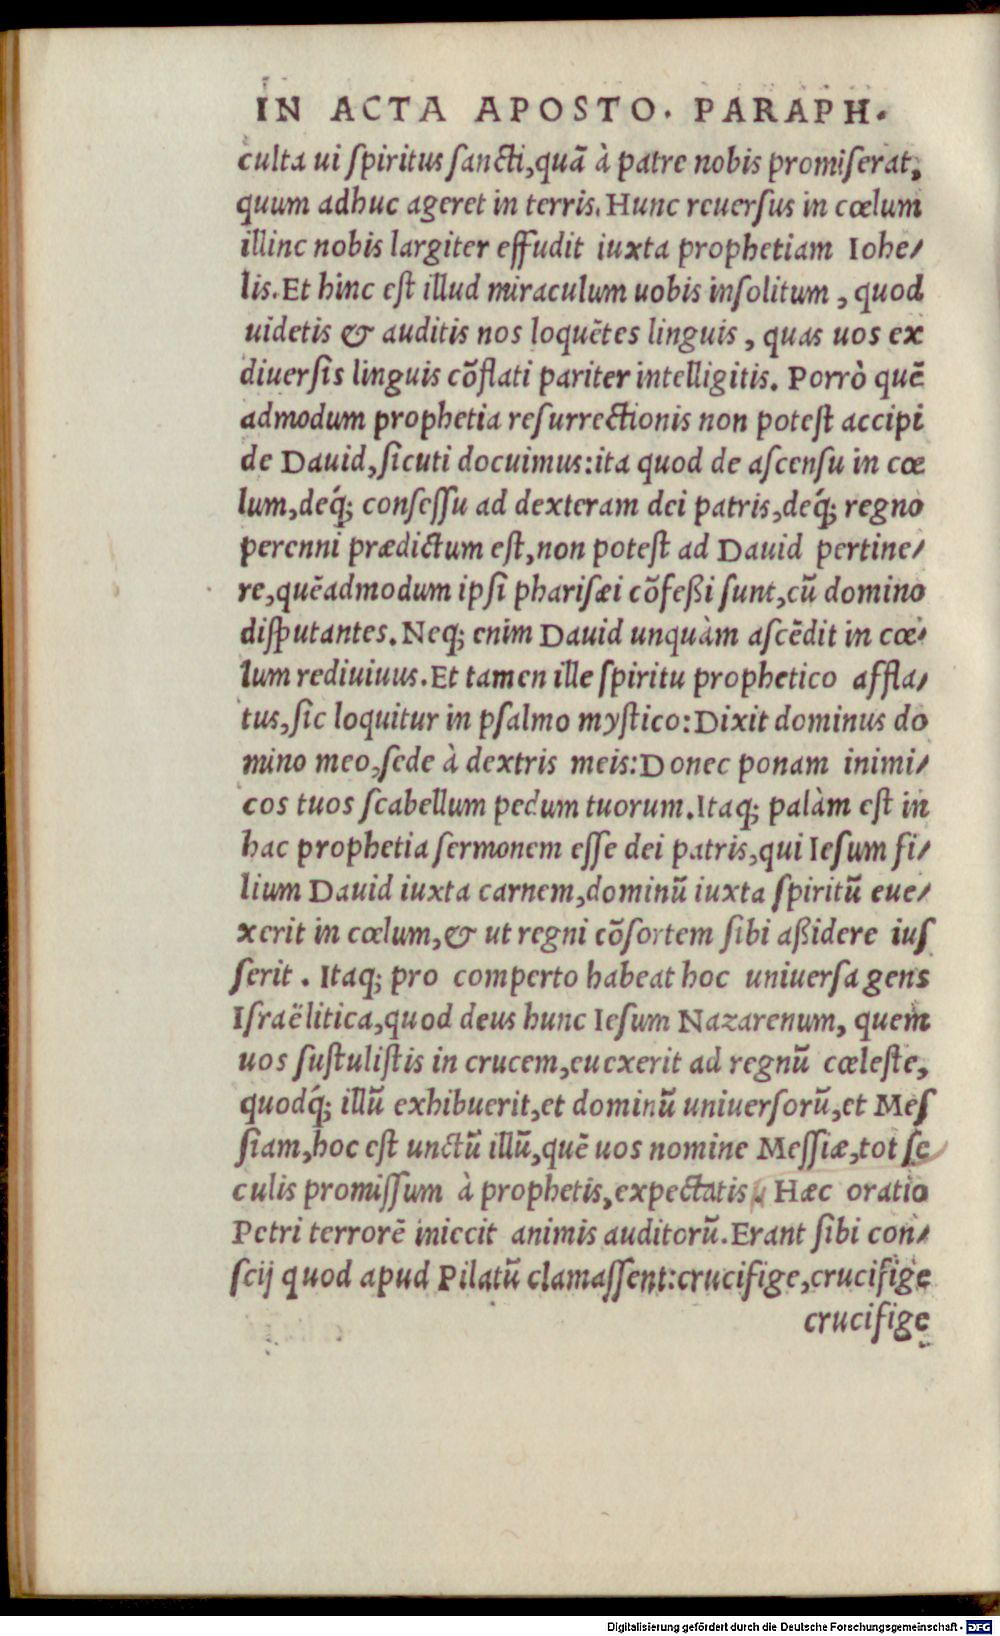 IN ACTA APOSTO. PARAPH.
culta ui ſpiritus ſancti,quā à patre nobis promiſerat,
quum adhuc ageret in terris. Hunc reuerſus in cœlum
illinc nobis largiter effudit iuxta prophetiam Iohe/
lis. Et hinc eſt illud miraculum uobis inſolitum , quod
uidetis & auditis nos loquētes linguis , quas uos ex
diuerſis linguis cōflati pariter intelligitis. Porrò quē
admodum prophetia reſurrectionis non poteſt accipi
de Dauid,ſicuti docuimus:ita quod de aſcenſu in cœ
lum,deq́; conſeſſu ad dexteram dei patris,deq́; regno
perenni prædictum eſt,non poteſt ad Dauid pertine/
re,quēadmodum ipſi phariſæi cōfeßi ſunt,cū domino
diſputantes. Neq; enim Dauid unquàm aſcēdit in cœ/
lum rediuiuus. Et tamen ille ſpiritu prophetico affla/
tus,ſic loquitur in pſalmo myſtico: Dixit dominus do
mino meo,ſede à dextris meis: Donec ponam inimi/
cos tuos ſcabellum pedum tuorum. Itaq; palàm eſt in
hac prophetia ſermonem eſſe dei patris,qui Ieſum fi/
lium Dauid iuxta carnem,dominū iuxta ſpiritū eue/
xerit in cœlum,& ut regni cōſortem ſibi aßidere iuſ
ſerit . Itaq; pro comperto habeat hoc uniuerſa gens
Iſraëlitica,quod deus hunc Ieſum Nazarenum, quem
uos ſuſtuliſtis in crucem,euexerit ad regnū cœleſte,
quodq́; illū exhibuerit,et dominū uniuerſorū,et Meſ
ſiam,hoc eſt unctū illū,quē uos nomine Meſſiæ,tot ſe
culis promiſſum à prophetis,expectatis. Hæc oratio
Petri terrorē iniecit animis auditorū. Erant ſibi con/
ſcij quod apud Pilatū clamaſſent:crucifige,crucifige
crucifige
Digitalisierung gefördert durch die Deutsche Forschungsgemeinschaft - DFG